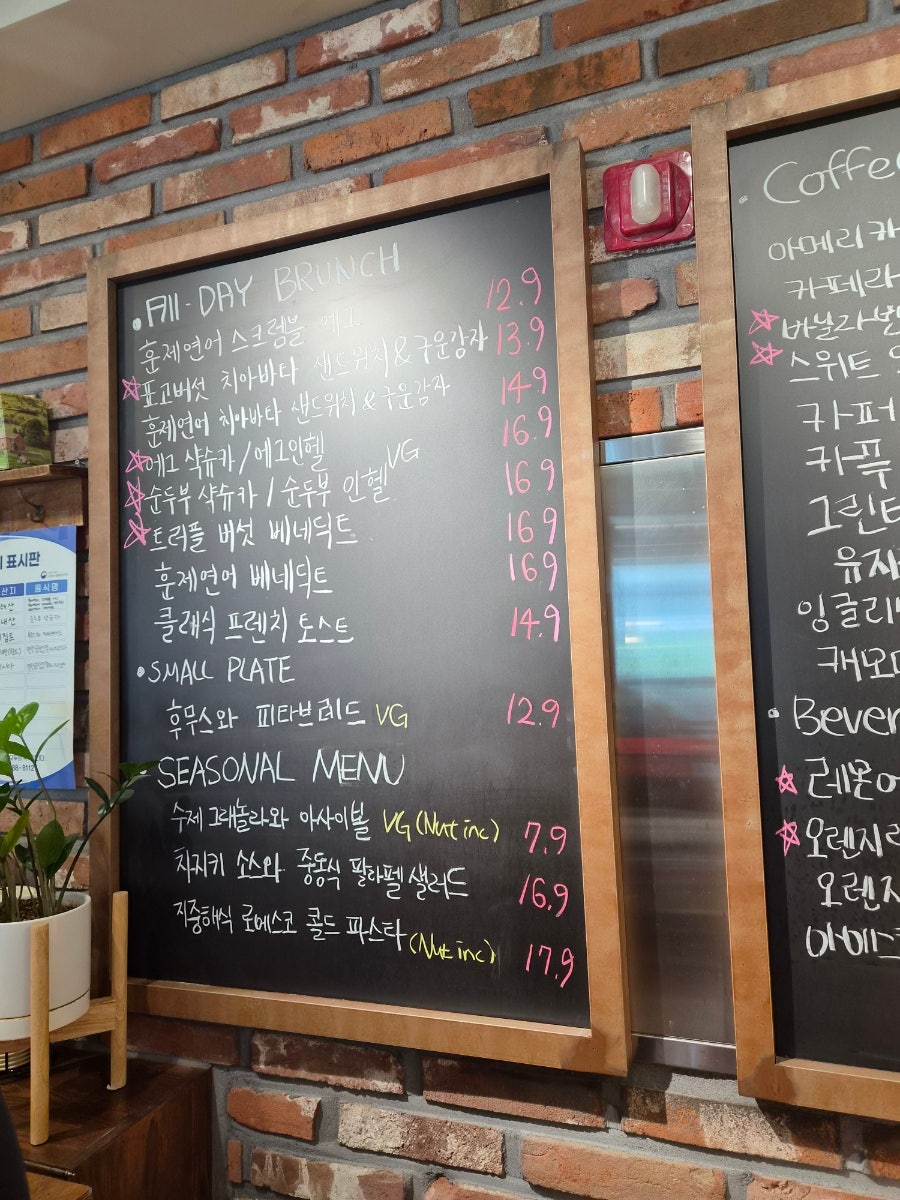 All-DAY BRUNCH
훈제연어 스크램블 에그 12.9
☆표고버섯 치아바타 샌드위치&구운감자 13.9
훈제연어 치아바타 샌드위치&구운감자 14.9
☆에그 샥슈카/에그인헬 16.9
☆순두부 샥슈카/순두부 인헬 VG 16.9
☆트러플 버섯 베네딕트 16.9
훈제연어 베네딕트 16.9
클래식 프렌치 토스트 14.9
•SMALL PLATE
후무스와 피타브레드 VG 12.9
•SEASONAL MENU
수제 그래놀라와 아사이볼 VG(Nut inc) 7.9
차지키 소스와 중동식 팔라펠 샐러드 16.9
지중해식 로메스코 콜드 파스타 (Nut inc) 17.9
• Coffee
아메리카
카페라
☆바닐라
☆스위트
카페
카푸
그린티
유자
잉글리
캐모
• Bever
☆레몬에
☆오렌지
오렌지
아이스
표시판
음식명